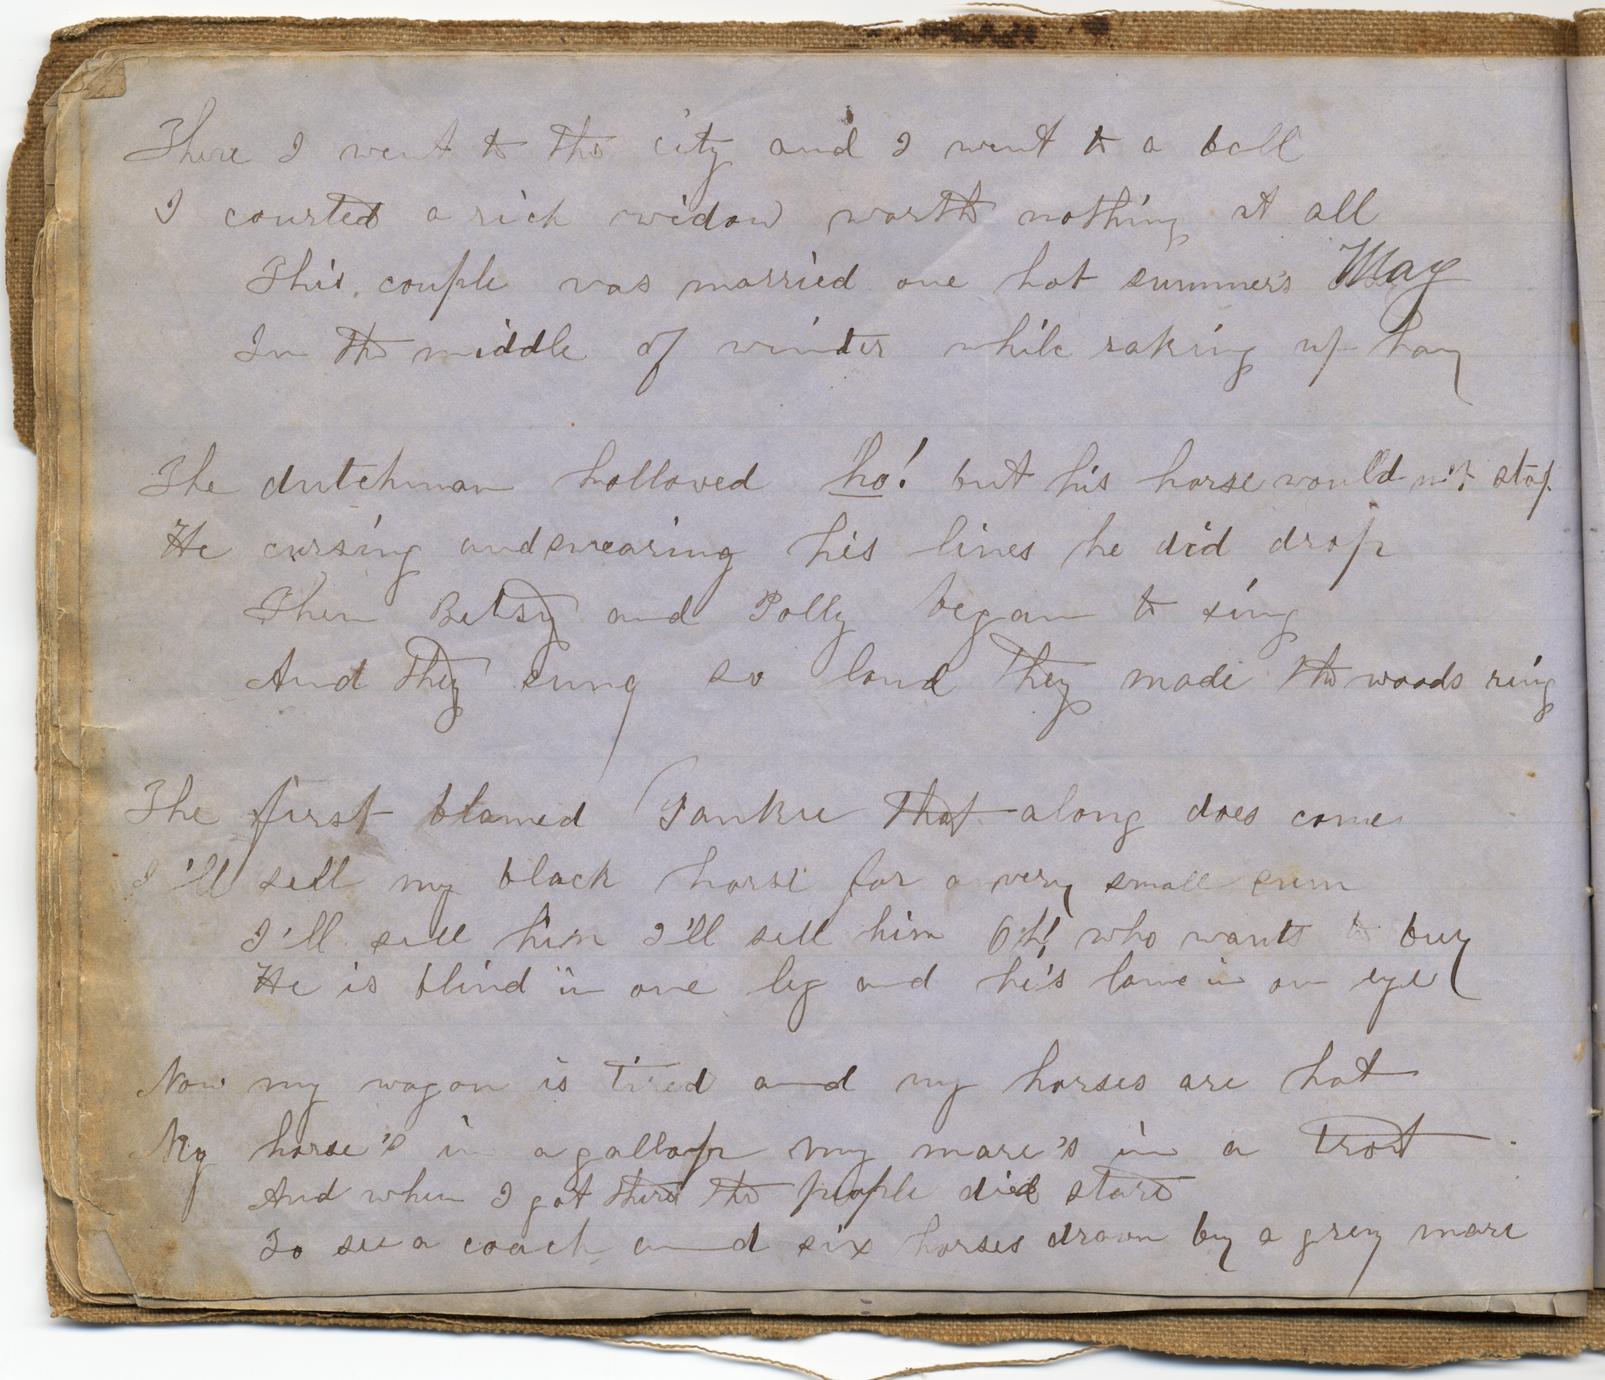 There I went to the city and I went to a ball
I courted a rich widow worth nothing at all
This couple was married one hot summer's May
In the middle of winter while raking up hay
The dutchman hollowed ho! but his horse would n't stop
He cursing and swearing his lines he did drop
Then Betsy and Polly began to sing
And they sung so loud they made the woods ring
The first blamed Yankee that along does come
I'll sell my black horse for a very small sum
I'll sell him I'll sell him Oh! who wants to buy
He is blind in one leg and he's lame in an eye
Now my wagon is tired and my horses are hot
My horse's in a gallop my mare's in a trot
And when I got there the people did stare
To see a coach and six horses drawn by a grey mare